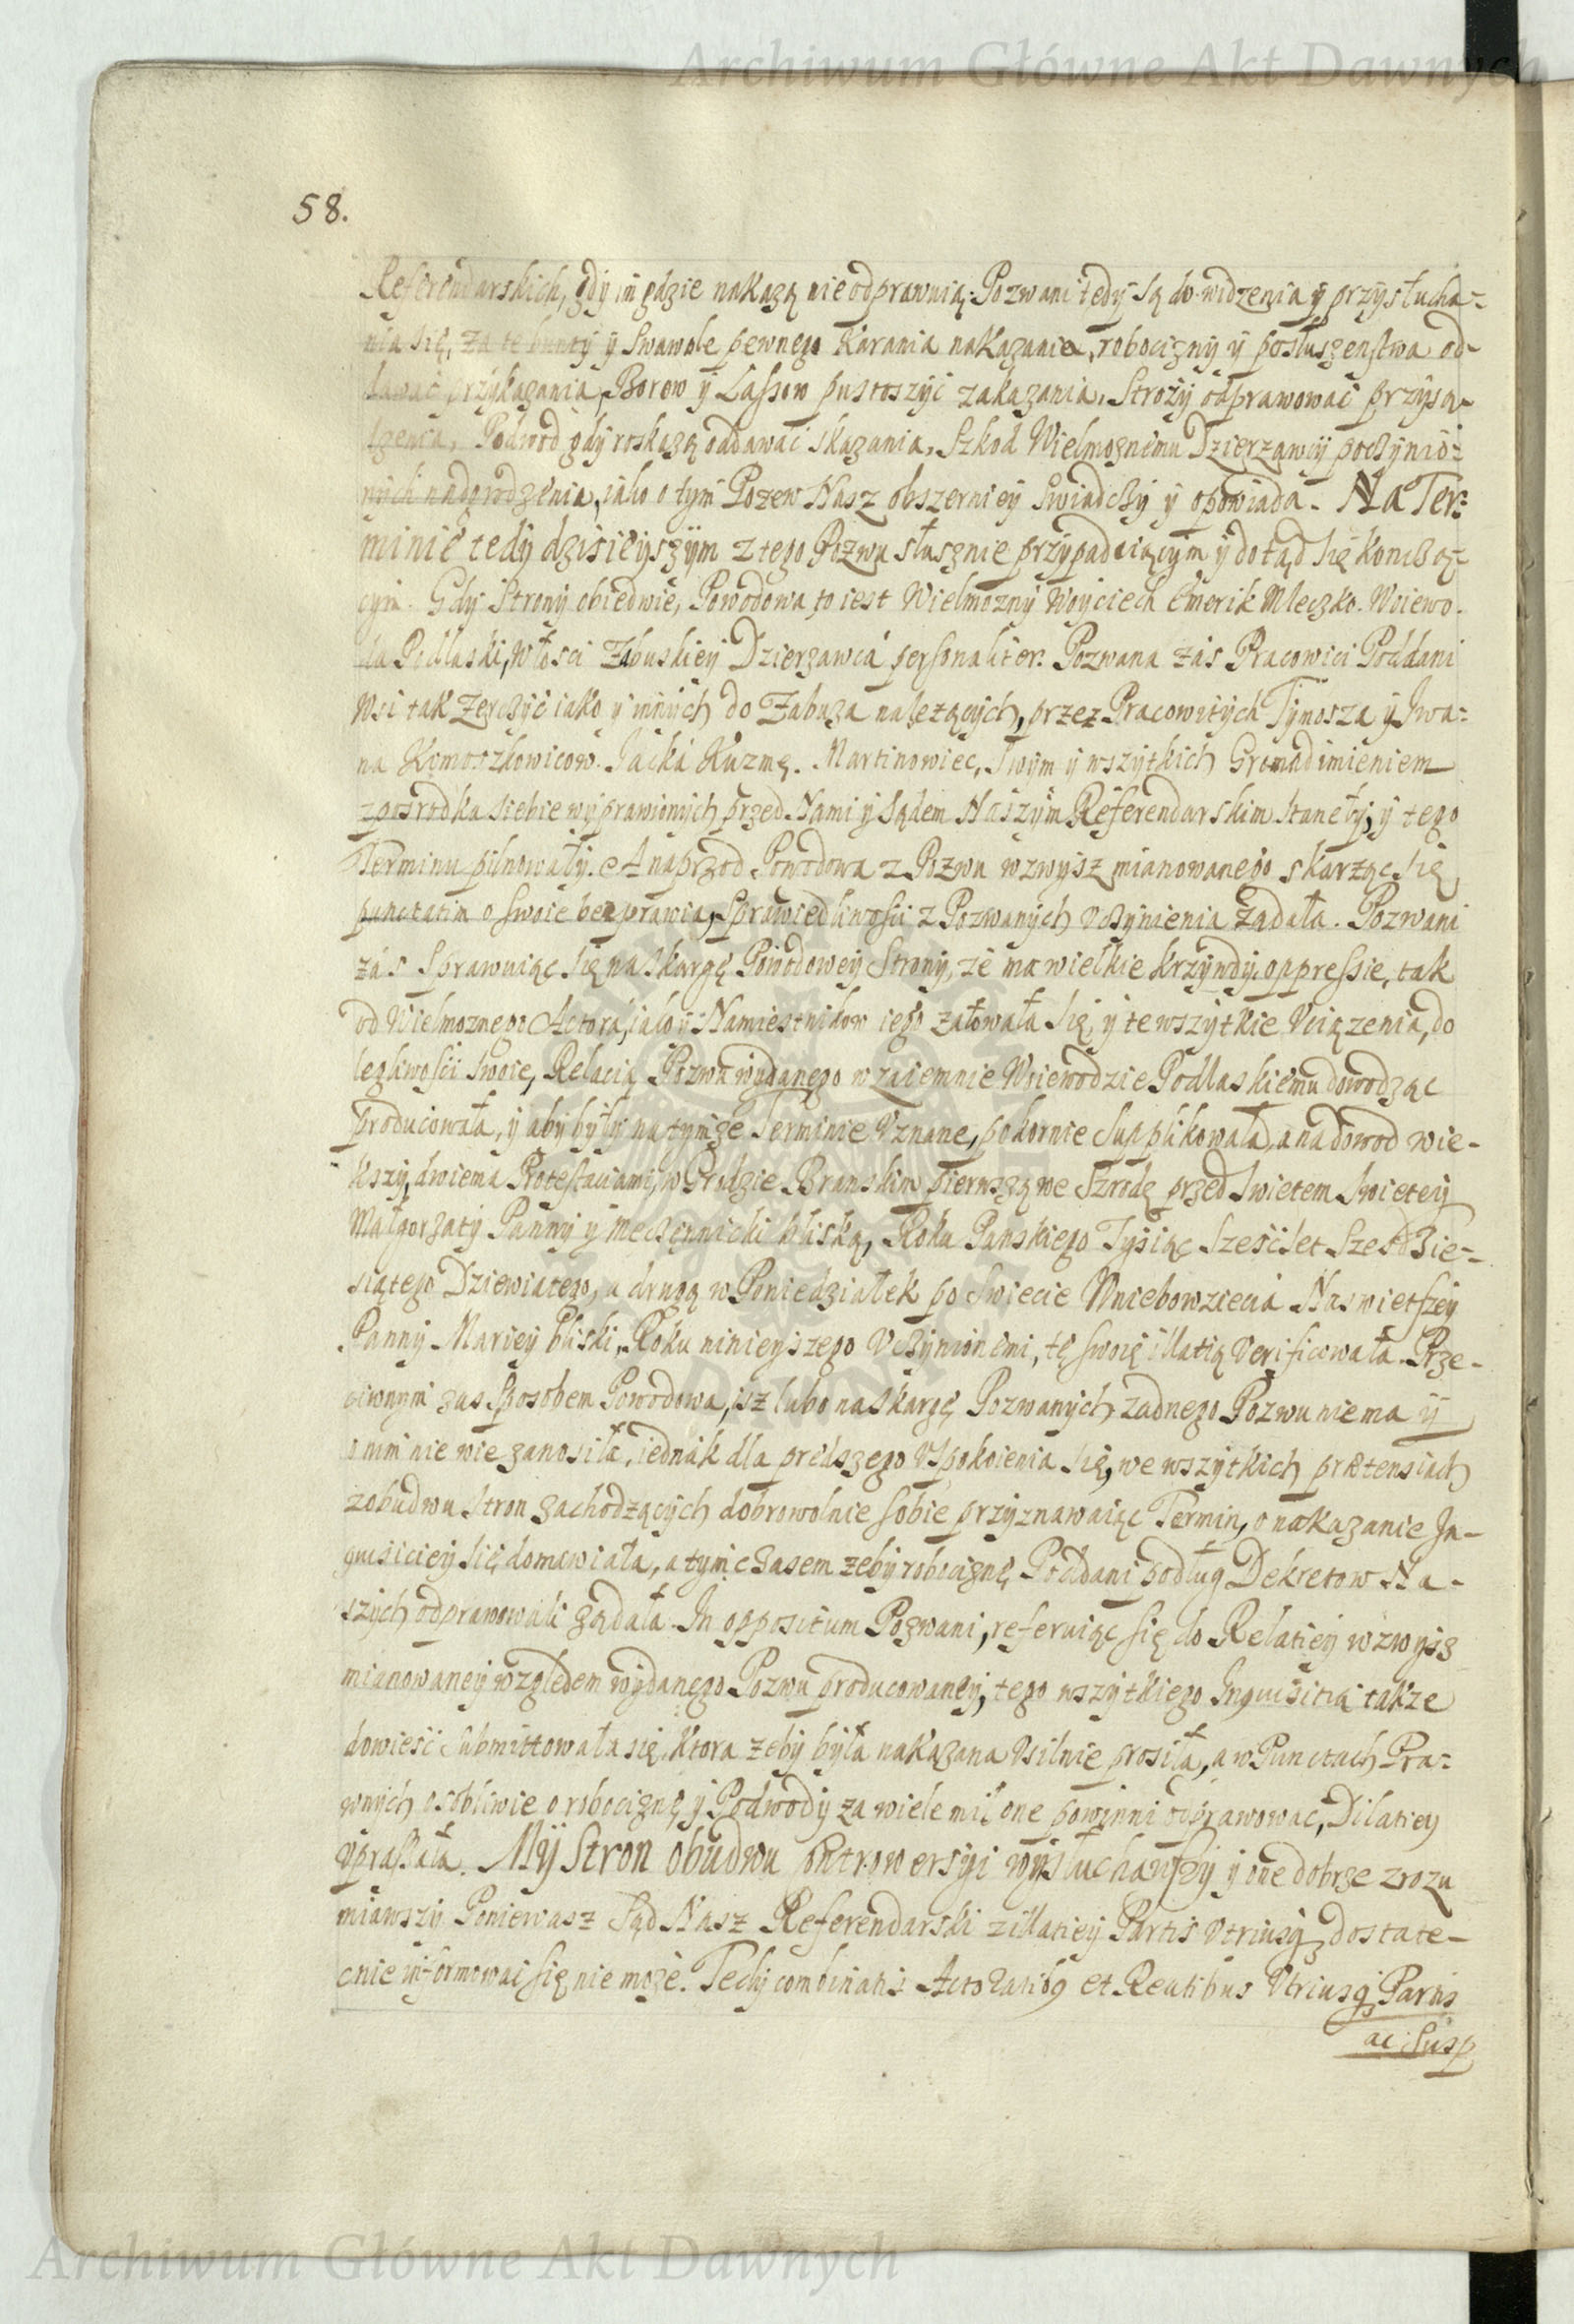 Archiwum Główne Akt Dawnych
58.
Referendarskich, gdy im gdzie nakazą nie odprawuią. Pozwani tedy są do widzenia y przysłucha=
nia się, za te bunty y swawole pewnego karania nakazanie, robocizny y posłuszenstwa od-
dawać przykazania, Borow y Lassow pustoszyć zakazania, Stroży odprawować przysą-
dzenia, Podwod gdy roskazą oddawać skazania, Szkod Wielmoznemu Dzierzawcy poczynio=
nych nadgrodzenia, iako o tym Pozew Nasz obszerniey swiadczy y opowiada. Na Ter=
minie tedy dzisieyszym z tego Pozwu słusznie przypadaiącym y dotąd się konczą=
cym. Gdy Strony obiedwie, Powodowa to iest Wielmozny Woyciech Emerik Mleczko. Woiewo-
da Podlaski, włosci Zabuskiey Dzierzawca personaliter. Pozwana zás Pracowici Poddani
wsi tak Zerczyć iako y innych do Zabuza nalezących, przez Pracowitych Tymosza y Jwa=
na Komoszkowicow. Jacka Kuzmę. Martinowiec, Swym y wszytkich Gromad imieniem
zposrodka siebie wyprawionych przed Nami y Sądem Naszym Referendarskim staneły, y tego
Terminu pilnowały. A naprzod Powodowa z Pozwu wzwysz mianowanego skarząc się
punctatim o swoie bezprawia, Sprawiedliwosci z Pozwanych vczynienia ządała. Pozwani
zás Sprawuiąc się na skargę Powodowey Strony, ze ma wielkie krzywdy, oppressie, tak
od Wielmoznego Actora, iako y Namiestnikow iego załowała się, y te wszytkie Vciązenia, do
legliwosci swoie, Relacią Pozwu wydanego wzaiemnie Woiewodzie Podlaskiemu dowodząc
producowała, y aby były na tymze Terminie Vznane, pokornie supplikowała, a na dowod wie-
kszy, dwiema Protestaciami, w Grodzie Branskim pierwszą we Szrodę przed Swietem Swietey
Małgorzaty Panny y Meczęnnicki bliską, Roku Panskiego Tysiąc Szescset Szescdzie-
siątego Dziewiatego, a drugą w Poniedziałek po Swiecie Wniebowziecia Naswietszey
Panny Mariey bliski, Roku ninieyszego Vczynionemi, tę swoię illatią verificowała. Prze-
ciwnym zas Sposobem Powodowa, isz lubo na skargę Pozwanych zadnego Pozwu niema y
o nim nie wie zanosiła, iednak dla predszego Vspokoienia się, we wszytkich prætensiach
zobudwu stron zachodzących dobrowolnie sobie przyznawaiąc Termin, o nakazanie In-
quisiciey się domawiała, a tym czasem zeby robociznę Poddani podług Dekretow Na-
szych odprawowali ządała. In oppositum Pozwani, referuiąc się do Relatiey wzwysz
mianowaney względem wydanego Pozwu producowaney, tego wszytkiego Inquisitią takze
dowiesć submittowała się, ktora zeby była nakazana vsilnie prosiła, a w Punctach Pra=
wnych, osobliwie o robociznę y Podwody za wiele mil one powinni odprawować, Dilatiey
vpraszała. My Stron obudwu controwersyi wysłuchawszy y one dobrze zrozu
miawszy Poniewasz Sąd Nasz Referendarski z illatiey Partis Vtriusq3 dostate-
cnie informować się nie moze. Tedy combinatis Actoratibq et Reatibus Vtriusq3 Partis
ac Susp
Archiwum Główne Akt Dawnych